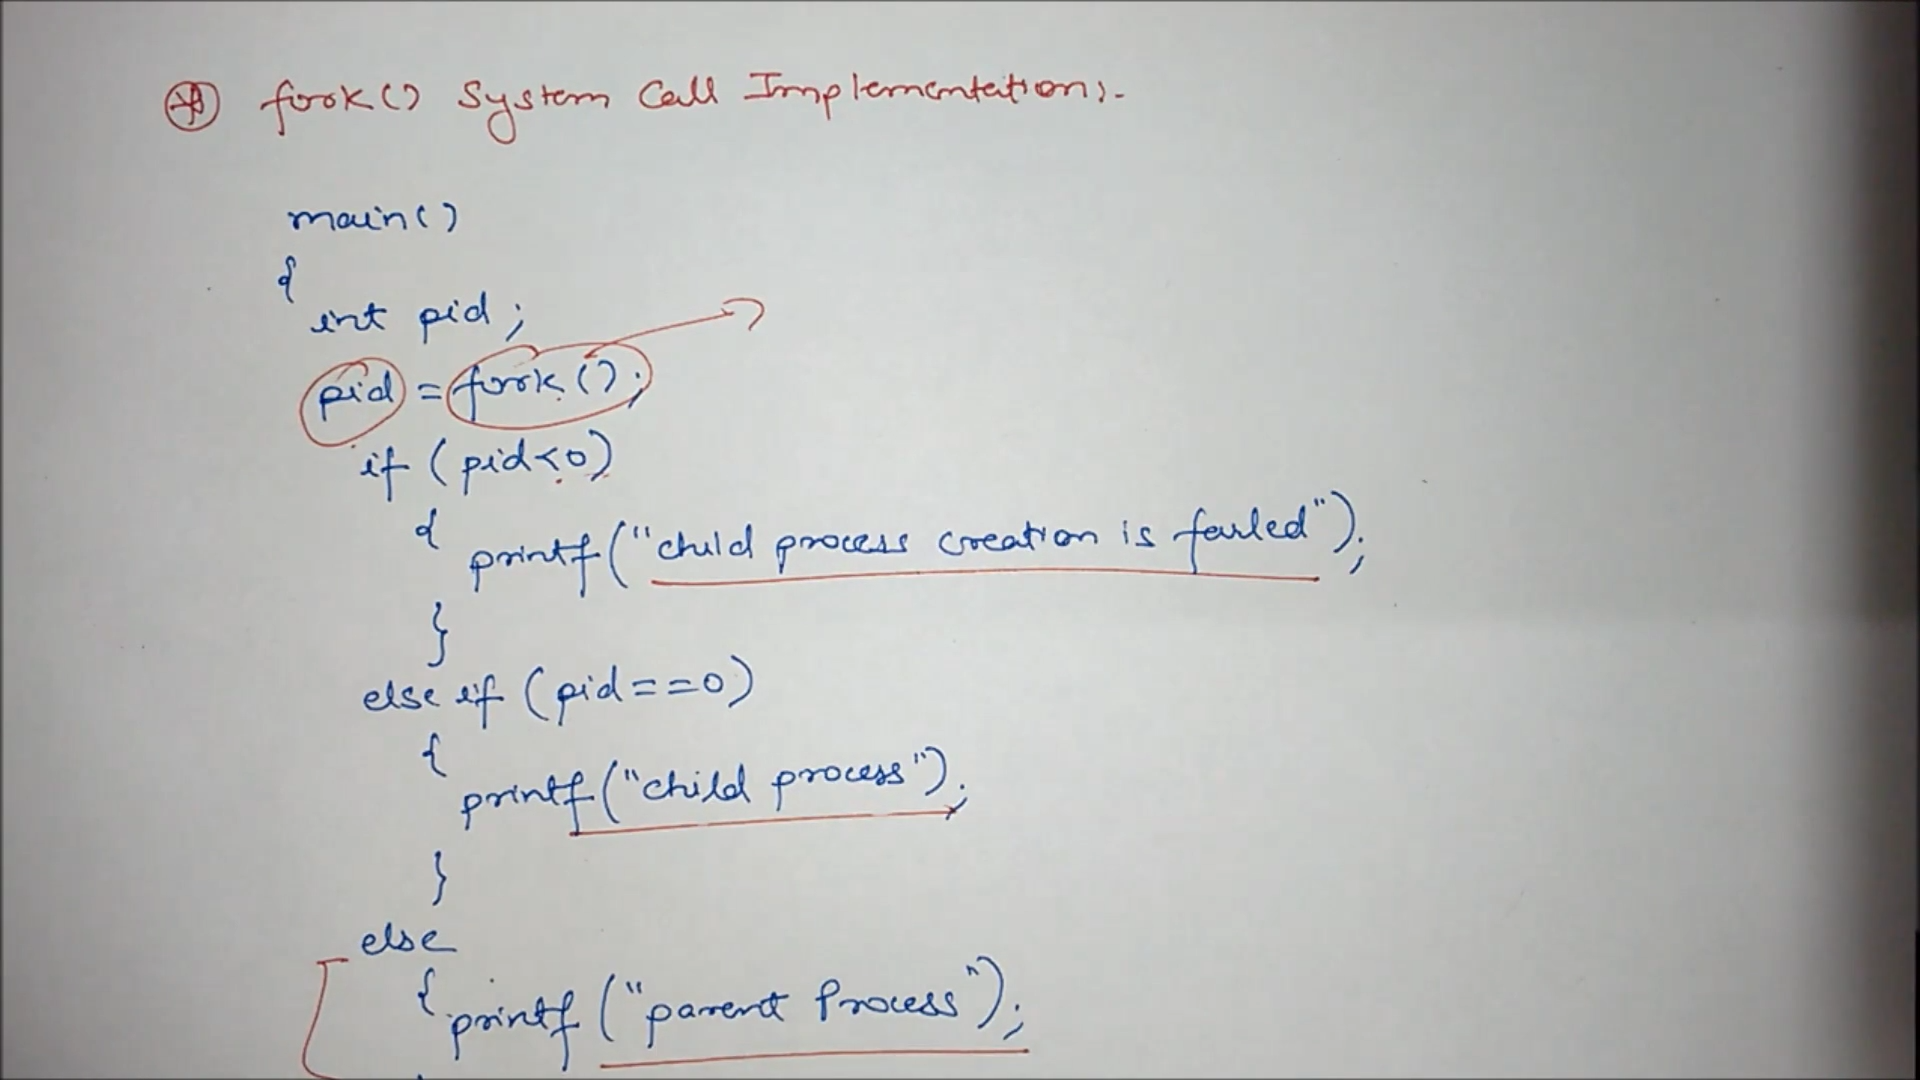 fork() System Call Implementation:-
main()
{
int pid;
pid = fork();
if (pid<0)
{
printf("child process creation is failed");
}
else if (pid==0)
{
printf("child process");
}
else
{ printf ("parent Process");